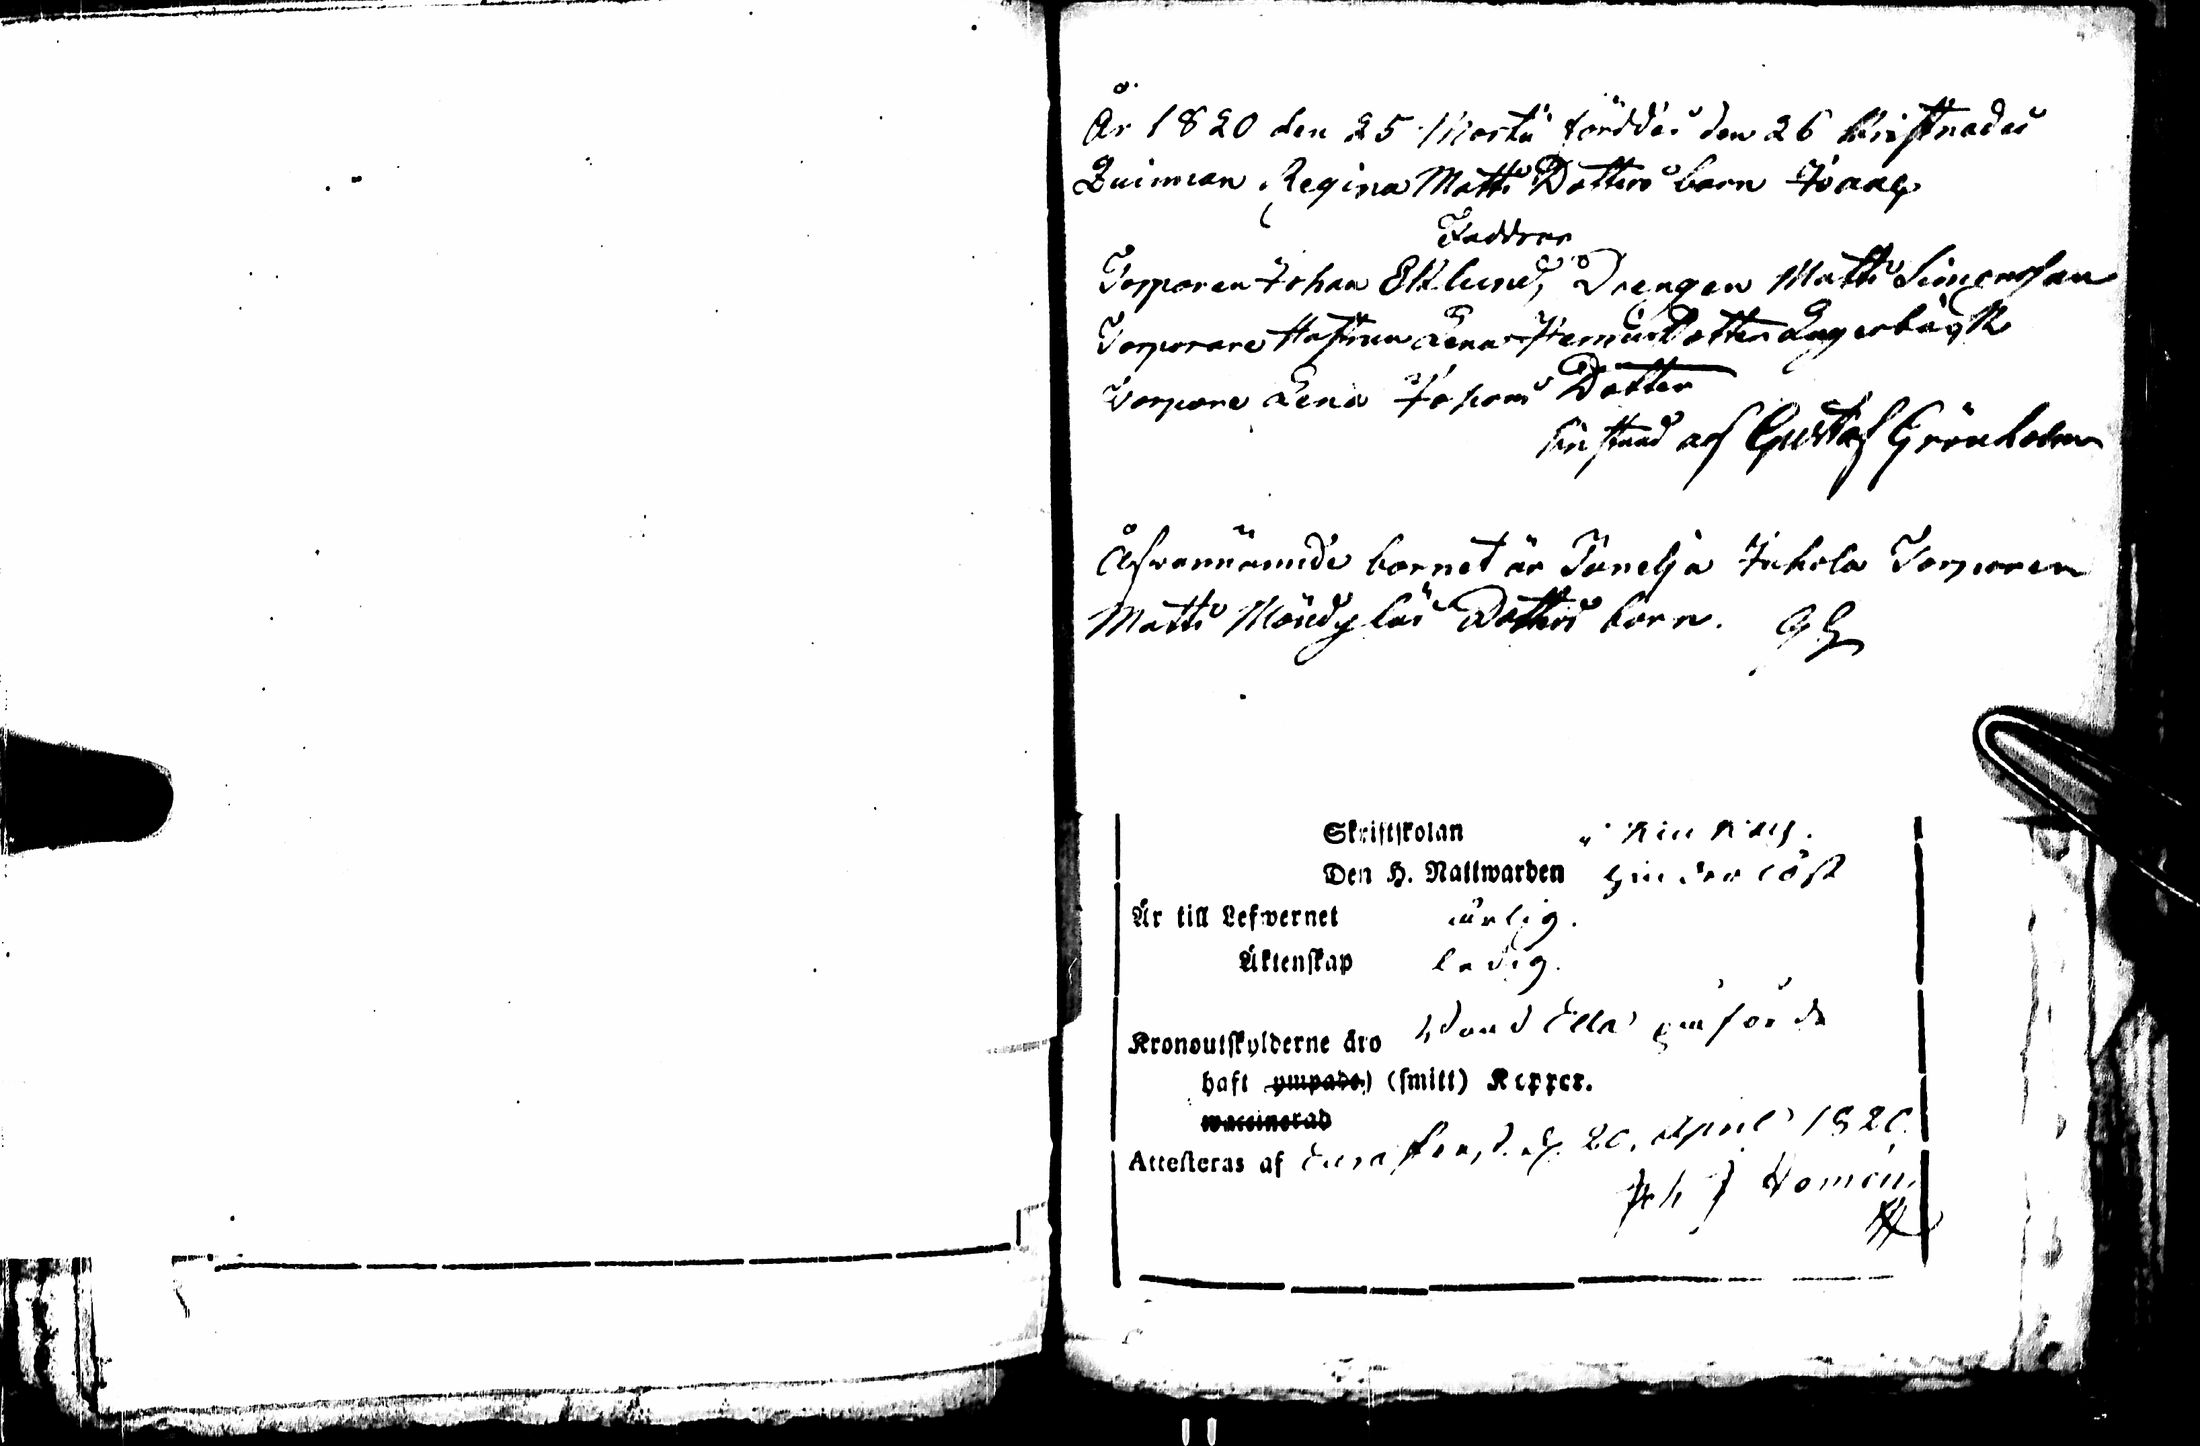 År 1820 den 25 Martii föddes den 26 kristnades
Quinnan Regina Matts Dotters barn Isaac
Faddrar
Torparen Johan Eklund, Drengen Matts Simonsson
Torpare Hustrun Lena Dotter Lagerbäck
Torpare Lena Johans Dotter
kristnad af Gustaf Grönholm
Åfvannämnde barnet är Juhola Torparen
Matts Dotters barn. GG
Skriftskolan
Den H. Nattwarden hinderlöst
Är till Lefwernet ärlig.
Äktenskap ledig.
Kronoutskylderne äro
haft ympade) (smitt) Koppor.
waccinerad
Attesteras af d. 20. April 1820.
Joh